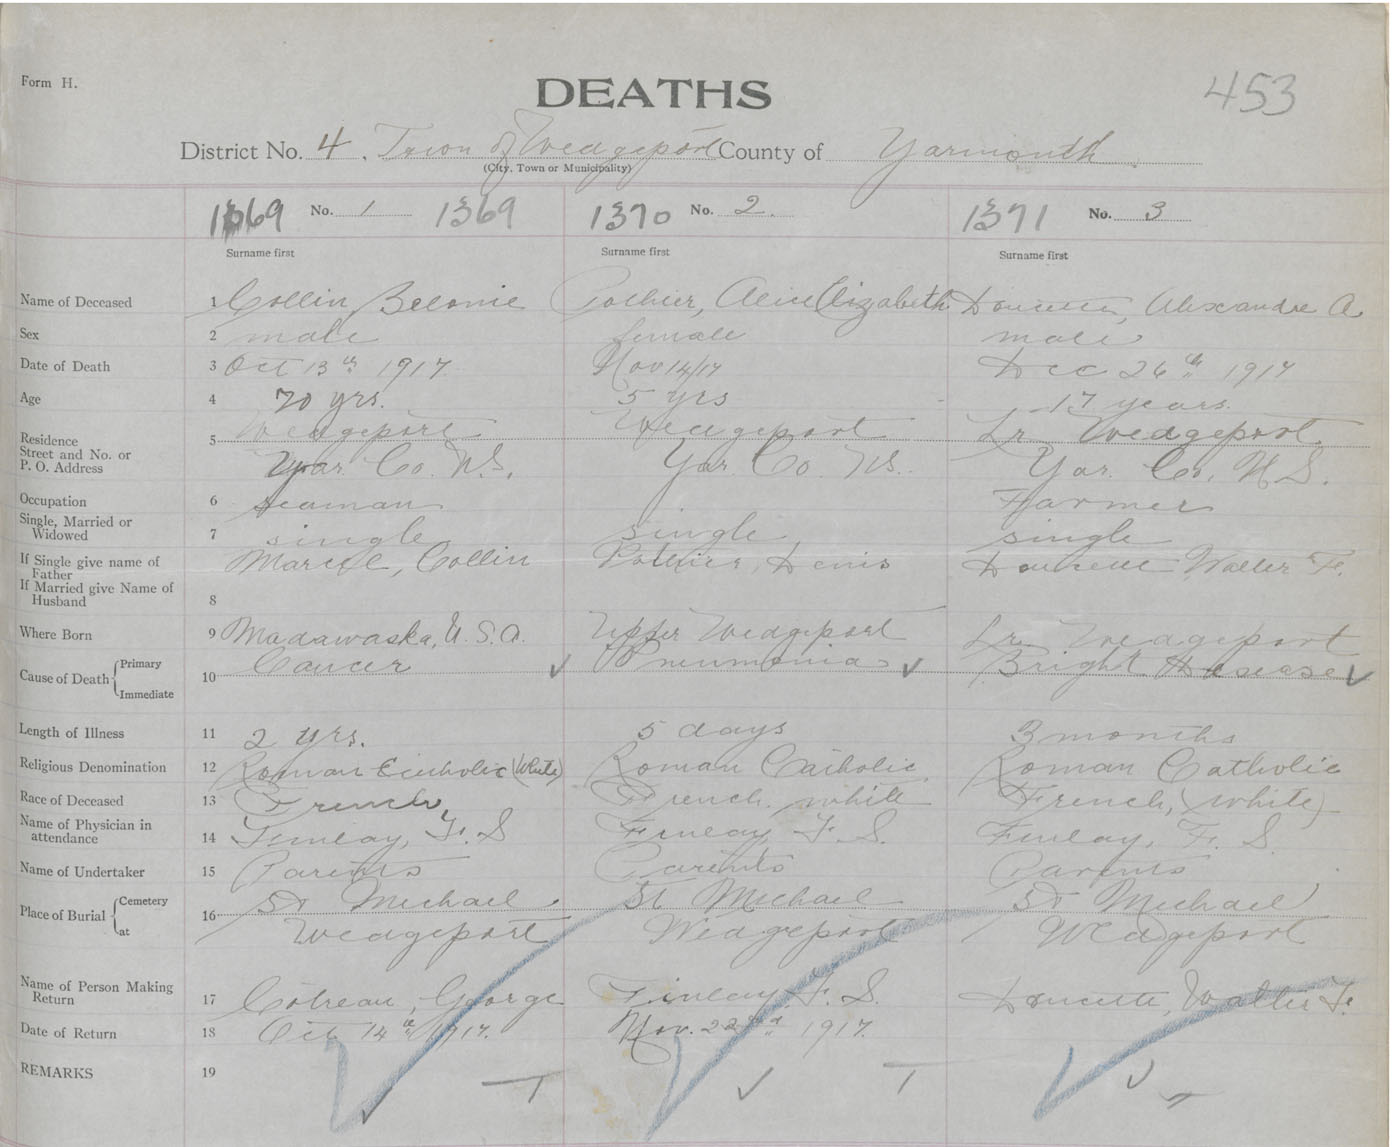 Form H.
DEATHS
453
District No. 4. Town of Wedgeport County of Yarmouth
(City, Town or Municipality)
1369 No. 1 1369 1370 No. 2. 1371 No. 3
Surname first Surname first Surname first
Name of Deceased 1 Collin Belonie Pothier, Alice Elizabeth Doucette, Alexandre A
Sex 2 male female male
Date of Death 3 Oct 13th 1917 Nov 14/17 Dec 26th 1917
Age 4 70 yrs. 5 yrs 17 years.
Residence Street and No. or P. O. Address 5 Wedgeport Wedgeport Lr. Wedgeport
Yar. Co. N.S. Yar Co NS. Yar. Co. N.S.
Occupation 6 seaman Farmer
Single, Married or Widowed 7 single single single
If Single give name of Father Marcel, Collin Pothier, Denis Doucette Walter F.
If Married give Name of Husband 8
Where Born 9 Madawaska, U.S.A. Upper Wedgeport Lr. Wedgeport
Cause of Death Primary Immediate 10 Cancer Pneumonia Bright Disease
Length of Illness 11 2 yrs. 5 days 3 months
Religious Denomination 12 Roman Catholic (White) Roman Catholic Roman Catholic
Race of Deceased 13 French French, white French, (white)
Name of Physician in attendance 14 Finlay, F. S Finlay, F. S. Finlay, F. S.
Name of Undertaker 15 Parents Parents Parents
Place of Burial Cemetery at 16 St Michael St Michael St Michael
Wedgeport Wedgeport Wedgeport
Name of Person Making Return 17 Cotreau, George Finlay F. S. Doucette, Walter F.
Date of Return 18 Oct 14th 1917. Nov. 22nd 1917.
REMARKS 19